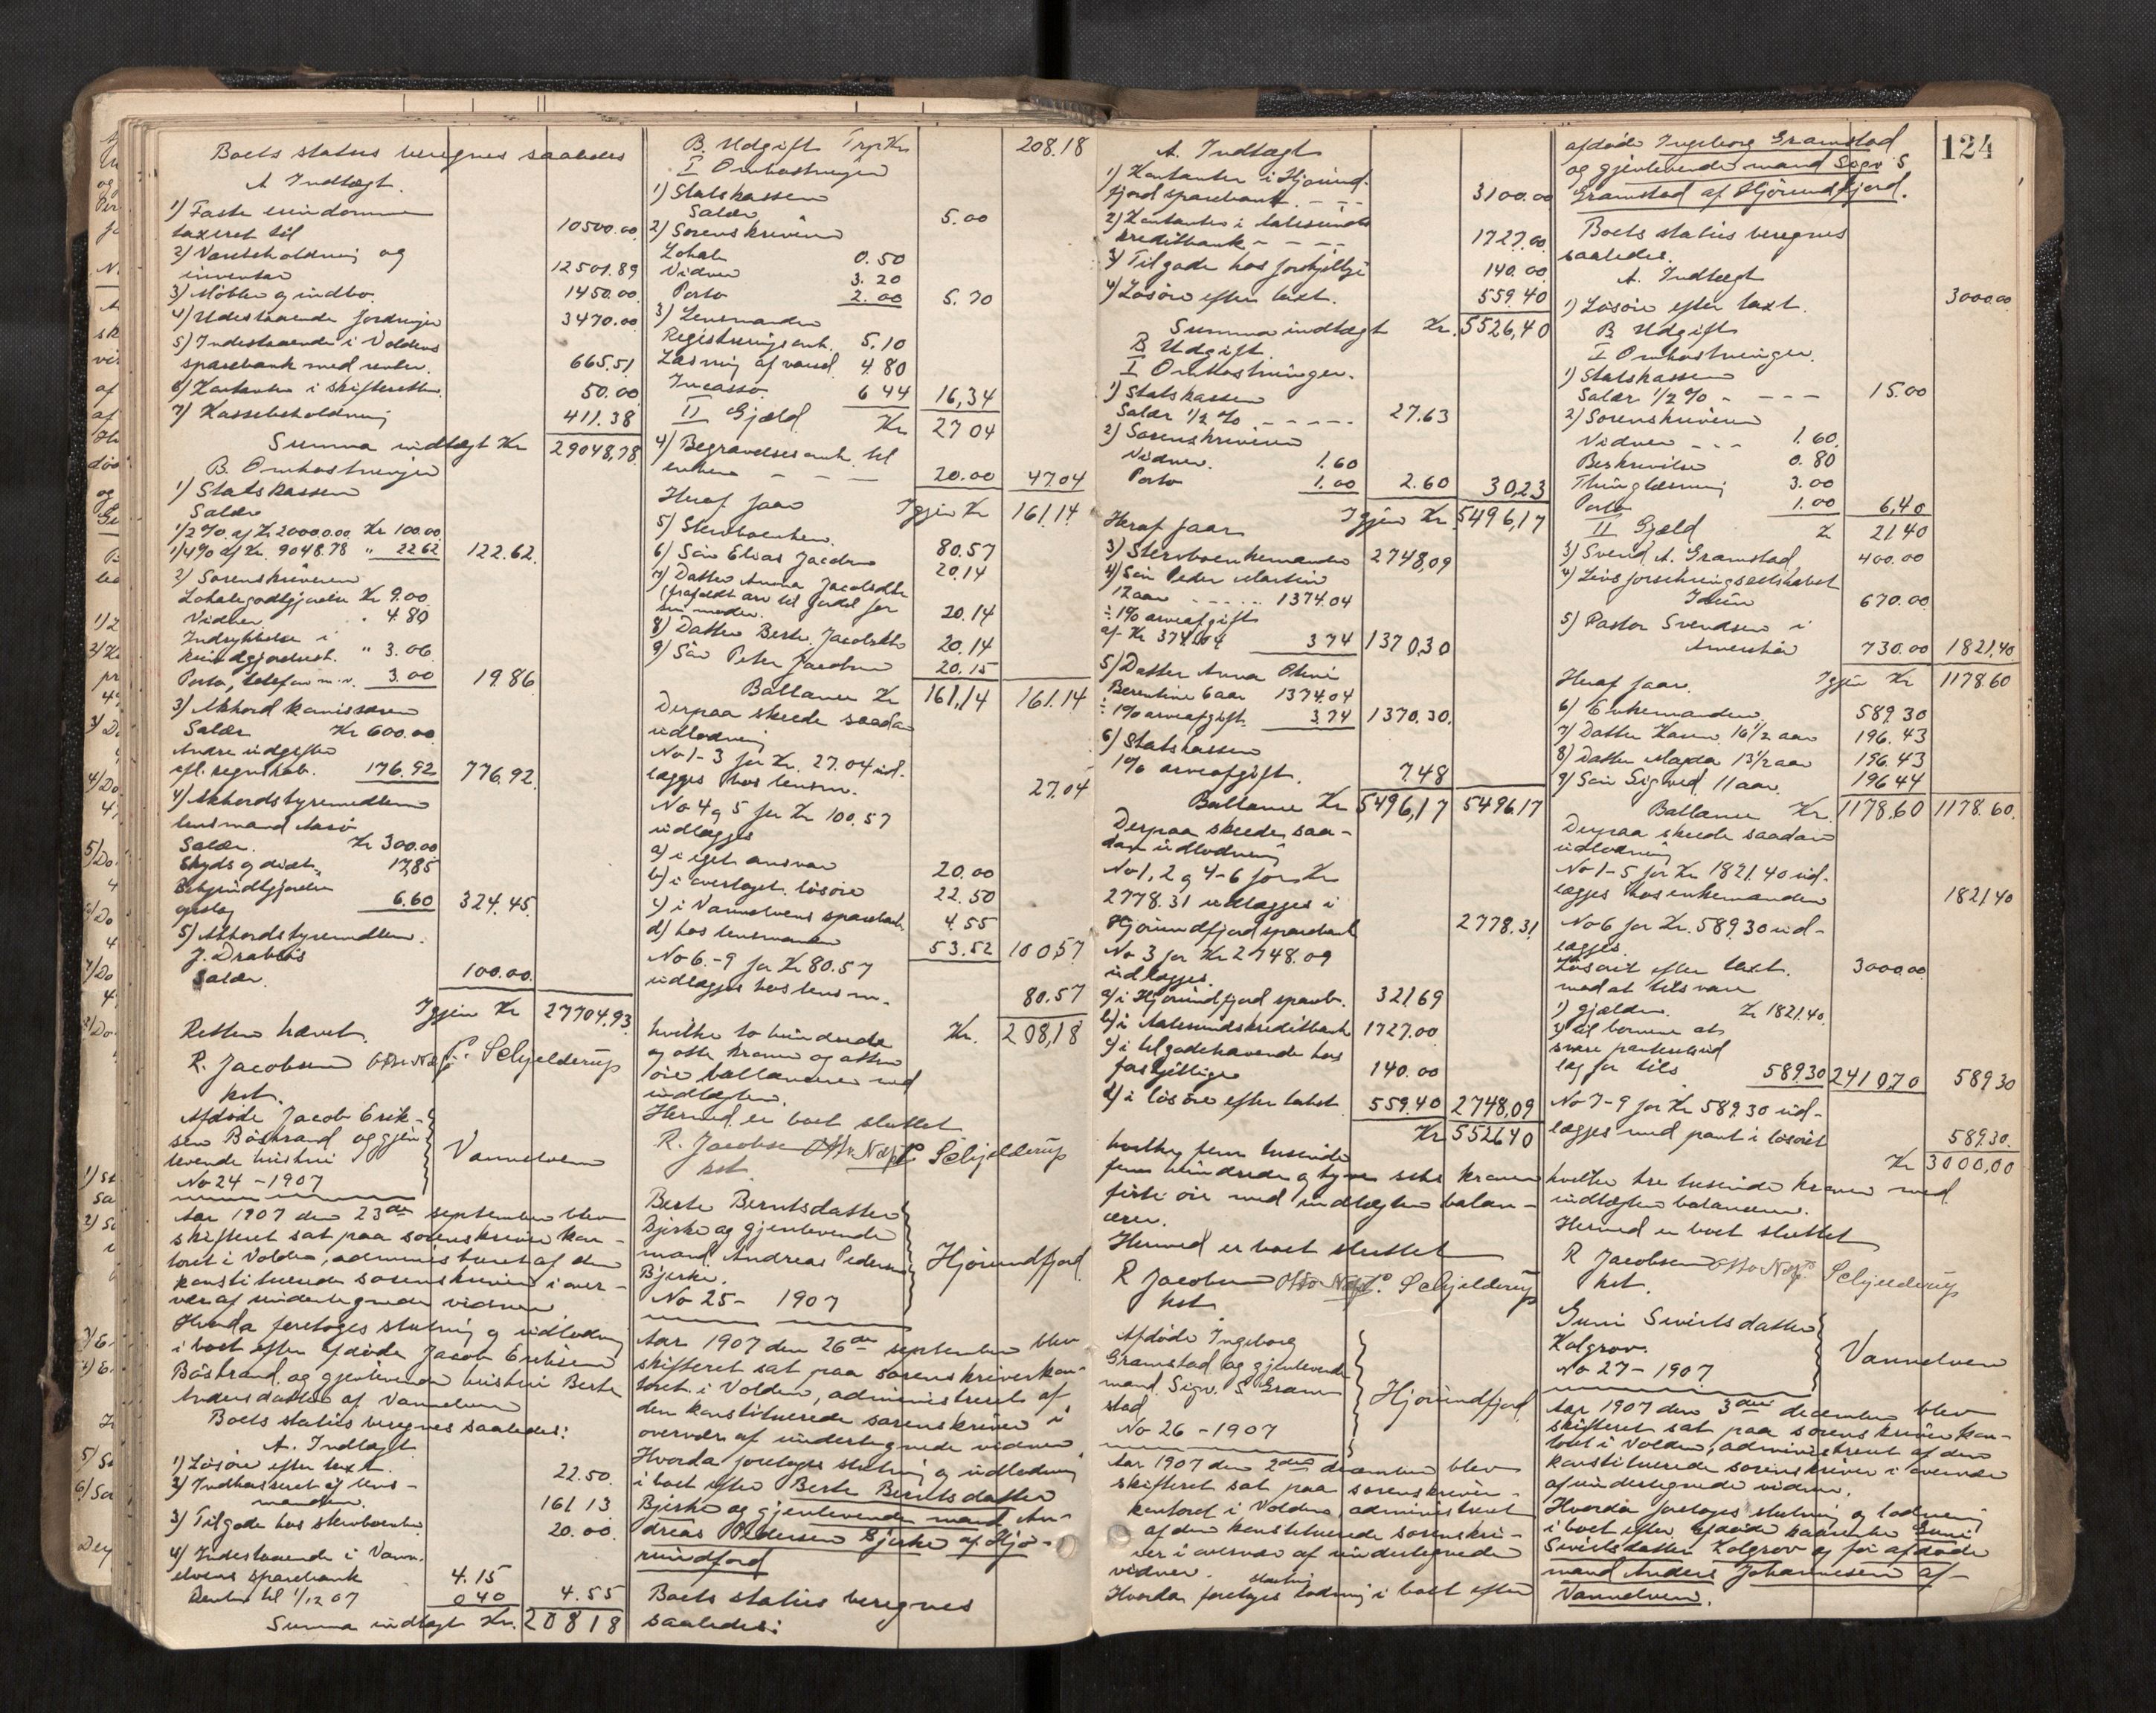 Boets status beregnes saaledes
A Indtægt.
1) Faste eiendomme
taxeret til 10500.00
2) Varebeholdning og
inventar 12501.89
3) Møbler og indbo. 1450.00
4) Udestaaende fordringer 3470.00
5) Indestaaende i Voldens
sparebank med renter. 665.51
6) Kontanter i skifteretten. 50.00
7) Kassebeholdning 411.38
Summa indtægt Kr 29048,78
B. Omkostninger
1) Statskassen
Salær
1/2 % af Kr 20000.00 Kr 100.00
1/4 % af Kr. 9048.78 " 22 62 122.62
2) Sorenskriveren
Lokalegodtgjørelse Kr 9.00
Vidner. " 4 80
Indrykkelse i
kundgjørelsest. " 3.06
Porto, telefon m.v. 3.00 19.86
3) Akkordkommissæren
Salær Kr 600.00
Andre udgifter
efl. regnskab. 176.92 776.92
4) Akkordstyremedlem
lensmand Aasø
Salær. Kr 300.00
Skyds og diæt " 17,85
6.60 324.45
5) Akkordstyremedlem.
J. Drabløs
Salær. 100.00
Igjen Kr 27704.93
Retten hævet.
R. Jacobsen Otto Nap. P. Schjelderup
kst.
Afdøde Jacob Erik-
sen Båstrand og gjen
levende hustru
No 24 - 1907
Vannelven
Aar 1907 den 23de september blev
skifteret sat paa sorenskriver kon-
toret i Volden, administreret af den
konstituerede sorenskriver i over-
vær af undertegnede vidner
Hvorda foretoges slutning og udlodning
i boet efter afdøde Jacob Eriksen
Båstrand og gjenlevende hustru Berte
Andersdatter af Vannelven
Boets status beregnes saaledes:
A. Indtægt
1) Løsøre efter taxt. 22.50
2) Indkasseret af lens-
manden. 161 13
3) Tilgode hos sterboenke. 20.00.
4) Indestaaende i Vann.
elvens sparebank 4.15
Renter til 1/12 07 0 40 4.55
Summa indtægt Kr. 208 18
B. Udgift Trp Kr 208.18
I Omkostninger
1) Statskassen
Salær 5.00
2) Sorenskriveren
Lokale 0.50
Vidner 3.20
Porto 2.00 5.70
3) Lensmanden
Registreringsomk. 5.10
Læsning af varsel 4 80
Incasso 6 44 16,34
II Gjæld. Kr 27 04
4) Begravelsesomk. til
enken - - - 20.00 47.04
Heraf faar Igjen Kr 161.14
5) Sterboenken. 80.57
6) Søn Elias Jacobsen 20.14
7) Datter Anna Jacobsdtr
(frafaldt arv til fordel for
sin moder. 20.14
8) Datter Berte Jacobsdtr 20.14
9) Søn Peter Jacobsen 20.15
Ballance Kr 161,14 161.14
Derpaa skeede saadan
udlodning
No 1-3 for Kr. 27.04 ud-
lægges hos lensm. 27.04
No 4 og 5 for Kr 100.57
udlægges
a) i eget ansvar 20.00
b) i overtaget løsøre 22.50
c) i Vannelvens sparebank 4.55
d) hos lensmanden 53.52 100 57
No 6.-9 for Kr 80.57
udlægges hos lensm. 80.57
hvilke to hundrede Kr. 208,18
og otte kroner og atten
øre ballancerer med
indtægten.
Hermed er boet sluttet
R. Jacobsen Otto Nap. P. Schjelderup
kst.
Berte Berntsdatter
Bjerke og gjenlevende
mand Andreas Pedersen
Bjerke.
No 25 - 1907
Hjørundfjord
Aar 1907 den 26de september blev
skifteret sat paa sorenskriverkon-
toret i Volden, administreret af
den konstituerede sorenskriver i
overvær af undertegnede vidner
Hvorda foretoges slutning og udlodning
i boet efter Berte Berntsdatter
Bjerke og gjenlevende mand An-
dreas Pedersen Bjerke af Hjø-
rundfjord
Boets status beregnes
saaledes:
A. Indtægt
1) Kontanter i Hjørund-
fjord sparebank. - - 3100.00
2) Kontanter i Aalesunds
kreditbank - - - - 1727.00
3) Tilgode hos forskjellige 140.00
4) Løsøre efter taxt. 559.40
Summa indtægt Kr. 5526,40
B. Udgift.
I Omkostninger.
1) Statskassen
Salær 1/2 % - - - - - 27.63
2) Sorenskriveren
Vidner. 1.60
Porto 1.00 2.60 30,23
Heraf faar Igjen Kr 5496,17
3) Sterboenkemanden 2748,09
4) Søn Peder Martin
12 aar - - - - - 1374.04
÷ 1 % arveafgift
af Kr 374.04 3 74 1370,30
5) Datter Anna Oline
Berentine 6 aar 1374.04
÷ 1 % arveafgift. 3.74 1370.30.
6) Statskassen
1 % arveafgift. 7.48
Ballance Kr 5496,17 5496.17
Derpaa skeede saa-
dan udlodning
No 1, 2 og 4-6 for Kr
2778.31 udlægges i
Hjørundfjord sparebank 2778.31
No 3 for Kr 2748.09
udlægges.
a) i Hjørundfjord spareb. 321.69
b) i Aalesunds kreditbank 1727.00
c) i tilgodehavende hos
forskjellige 140.00
d) i løsøre efter takst. 559.40 2748,09
Kr 5526 40
hvilke fem tusinde
fem hundrede og tyve seks kroner
førti øre med indtægten balan-
cerer.
Hermed er boet sluttet
R Jacobsen Otto Nap. P. Schjelderup
kst.
Afdøde Ingeborg
Gramstad og gjenlevende
mand Sigv. S Gram
stad
No 26 - 1907
Hjørundfjord
Aar 1907 den 2den december blev
skifteret sat paa sorenskriver-
kontoret i Volden, administreret
af den konstituerede sorenskri-
ver i overvær af undertegnede
vidner.
Hvorda foretoges slutning lodning i boet efter
124
afdøde Ingeborg Gramstad
og gjenlevende mand Sigv S
Gramstad af Hjørundfjord.
Boets status beregnes
saaledes.
A. Indtægt
1) Løsøre efter taxt. 3000.00
B Udgift
I Omkostninger.
1) Statskassen
Salær 1/2 % - - - - 15.00
2) Sorenskriveren
Vidner - - - 1.60.
Beskrivelse 0.80
Thinglæsning 3.00
Porto 1.00 6,40
II Gjæld Kr 21.40
3) Svend A. Gramstad 400.00
4) Livsforsikringsselskabet
Idun 670.00
5) Pastor Svendsen i
Amerika 730.00 1821,40
Heraf faar. Igjen Kr 1178.60
6) Enkemanden 589.30
7) Datter Karen 16 1/2 aar 196.43
8) Datter Magda 13 1/2 aar 196.43
9) Søn Sigved 11 aar. 196 44
Ballance Kr. 1178,60 1178.60.
Derpaa skeede saadan
udlodning
No 1-5 for Kr 1821.40 ud-
lægges hos enkemanden 1821.40
No 6 for Kr. 589.30 ud-
lægges.
Løsøret efter taxt. 3000.00
mod at tilsvare
1) gjælden. Kr 1821.40
2) til børnene at
svare panteudlæg for tils 589.30 2410 70 589 30
No 7-9 for Kr 589.30 ud-
lægges med pant i løsøret 589.30.
Kr 3000,00
hvilke tre tusinde kroner med
indtægten balancerer.
Hermed er boet sluttet
R Jacobsen Otto Nap. P. Schjelderup
kst.
Guri Sivertsdatter
Kolgrov.
No 27 - 1907
Vannelven
Aar 1907 den 3die december blev
skifteret sat paa sorenskriverkon-
toret i Volden, administreret af den
konstituerede sorenskriver i overvær
af undertegnede vidner.
Hvorda foretoges slutning og lodning
i boet efter afdøde kaarenke Guri
Sivertsdatter Kolgrov og før afdøde
mand Anders Johannesen af
Vannelven.